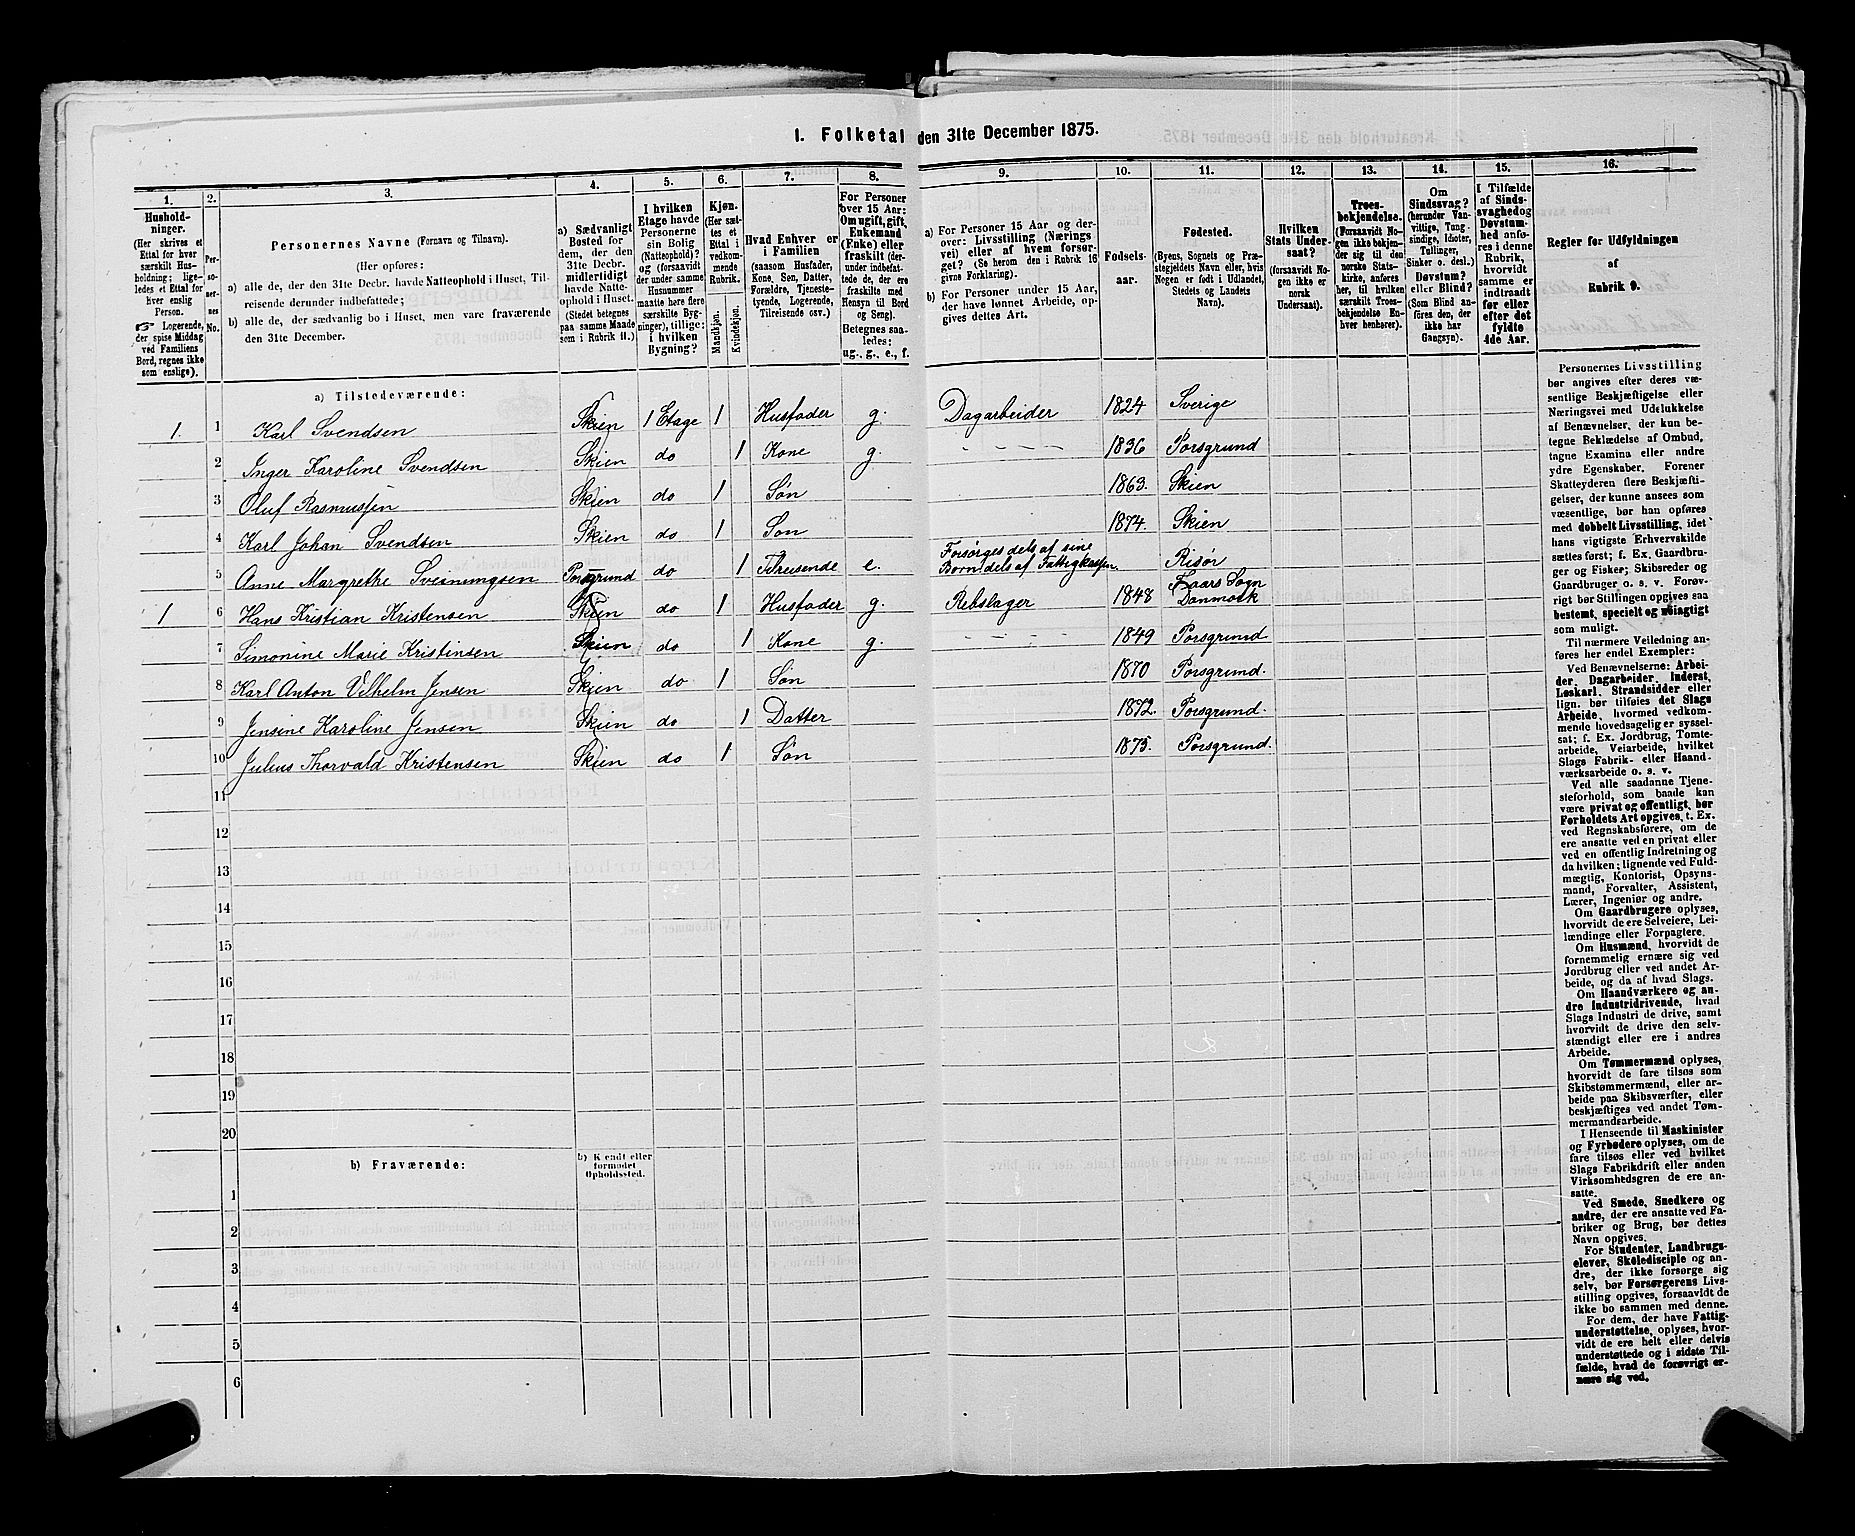 1. Folketal den 31te December 1875.
1. 2. 3. 4. 5. 6. 7. 8. 9. 10. 11. 12. 13. 14. 15. 16.
Hushold-
ninger.
(Her skrives et
Ettal for hver
særskilt Hus-
holdning; lige-
ledes et Ettal for
hver enslig
Person.
☞ Logerende,
der spise Middag
ved Familiens
Bord, regnes ikke
som enslige).
Per-
so-
ner-
nes
No.
Personernes Navne (Fornavn og Tilnavn).
(Her opføres:
a) alle de, der den 31te Decbr. havde Natteophold i Huset, Til-
reisende derunder indbefattede;
b) alle de, der sædvanlig bo i Huset, men vare fraværende
den 31te December.
a) Sædvanligt
Bosted for
dem, der den
31te Decbr.
midlertidigt
havde Natte-
ophold i Huset.
(Stedet betegnes
paa samme Maade
som i Rubrik 11.)
I hvilken
Etage havde
Personerne
sin Bolig
(Natteophold)?
og (forsaavidt
der under samme
Husnummer
maatte høre flere
særskilte Byg-
ninger), tillige:
i hvilken
Bygning?
Kjøn.
(Her sæt-
tes et
Ettal i
vedkom-
mende
Rubrik.
Mandkjøn.
Kvindekjøn.
Hvad Enhver er
i Familien
(saasom Husfader,
Kone, Søn, Datter,
Forældre, Tjeneste-
tyende, Logerende,
Tilreisende osv.)
For Personer
over 15 Aar:
Om ugift, gift,
Enkemand
(Enke) eller
fraskilt (der-
under indbefat-
tede de, der ere
fraskilte med
Hensyn til Bord
og Seng).
Betegnes saa-
ledes:
ug., g., e., f.
a) For Personer 15 Aar og der-
over: Livsstilling (Nærings
vei) eller af hvem forsør-
get? (Se herom den i Rubrik 16
givne Forklaring).
b) For Personer under 15 Aar,
der have lønnet Arbeide, op-
gives dettes Art.
Fødsels-
aar.
Fødested.
(Byens, Sognets og Præ-
stegjeldets Navn eller, hvis
Nogen er født i Udlandet,
Stedets og Landets
Navn).
Hvilken
Stats Under-
saat?
(forsaavidt No-
gen ikke er
norsk
Undersaat).
Troes-
bekjendelse.
(Forsaavidt No-
gen ikke bekjen-
der sig til den
norske Stats-
kirke, anføres
her, til hvilken
særskilt Troes-
bekjendelse En-
hver henhører).
Om
Sindssvag?
(herunder Van-
vittige, Tung-
sindige, Idioter,
Tullinger,
Sinker o. desl.)
Døvstum?
eller Blind?
(Som Blind an-
føres den, der
ikke har
Gangsyn).
I Tilfælde
af Sinds-
svaghed og
Døvstum-
hed anfø-
res i denne
Rubrik,
hvorvidt
samme er
indtraadt
før eller
efter det
fyldte
4de Aar.
Regler for Udfyldningen
af
Rubrik 9.
a) Tilstedeværende:
1. 1 Karl Svendsen Skien 1 Etage 1 Husfader g. Dagarbeider 1824 Sverige
2 Inger Karoline Svendsen Skien do 1 Kone g. - - - - 1836 Porsgrund
3 Oluf Rasmussen Skien do 1 Søn 1863. Skien
4 Karl Johan Svendsen Skien do 1 Søn 1874. Skien
5 Anne Margrethe Sveinungsen Porsgrund do 1 Tilreisende e. Forsørges dels af sine
Børn dels af Fattigkassen. Risør
1 6 Hans Kristian Kristensen Skien do 1 Husfader g. Rebslager 1848 Faars Sogn
Danmark
7 Simonine Marie Kristinsen Skien do 1 Kone g. - - - - 1849 Porsgrund
8 Karl Anton Vilhelm Jensen Skien do 1 Søn 1870 Porsgrund.
9 Jensine Karoline Jensen Skien do 1 Datter 1872. Porsgrund.
10 Julius Thorvald Kristensen Skien do 1 Søn 1875. Porsgrund.
11
12
13
14
15
16
17
18
19
20
b) Fraværende:
b) Kjendt eller
formodet
Opholdssted.
1
2
3
4
5
6
Personernes Livsstilling
bør angives efter deres væ-
sentlige Beskjæftigelse eller
Næringsvei med Udelukkelse
af Benævnelser, der kun be-
tegne Beklædelse af Ombud,
tagne Examina eller andre
ydre Egenskaber. Forener
Skatteyderen flere Beskjæfti-
gelser, der kunne ansees som
væsentlige, bør han opføres
med dobbelt Livsstilling, idet
hans vigtigste Erhvervskilde
sættes først; f. Ex. Gaardbru-
ger og Fisker; Skibsreder og
Gaardbruger o. s. v. Forøv-
rigt bør Stillingen opgives saa
bestemt, specielt og nøiagtigt
som muligt.
Til nærmere Veiledning an-
føres her endel Exempler:
Ved Benævnelserne: Arbei-
der, Dagarbeider, Inderst,
Løskarl, Strandsidder eller
lign. bør tilføies det Slags
Arbeide, hvormed vedkom-
mende hovedsagelig er syssel-
sat; f. Ex. Jordbrug, Tomte-
arbeide, Veiarbeide, hvilket
Slags Fabrik- eller Haand-
værksarbeide o. s. v.
Ved alle saadanne Tjene-
steforhold, som baade kan
være privat og offentligt, bør
Forholdets Art opgives, t. Ex.
ved Regnskabsførere, om de
ere ansatte ved en privat eller
ved en offentlig Indretning og
da hvilken; lignende ved Fuld-
mægtig, Kontorist, Opsyns-
mand, Forvalter, Assistent,
Lærer, Ingeniør og andre.
Om Gaardbrugere oplyses,
hvorvidt de ere Selveiere, Lei-
lændinge eller Forpagtere.
Om Husmænd, hvorvidt de
fornemmelig ernære sig ved
Jordbrug eller ved andet Ar-
beide, og da af hvad Slags.
Om Haandværkere og an-
dre Industridrivende, hvad
Slags Industri de drive, samt
hvorvidt de drive den selv-
stændigt eller ere i andres
Arbeide.
Om Tømmermænd oplyses,
hvorvidt de fare tilsøs som
Skibstømmermænd, eller ar-
beide paa Skibsværfter, eller
beskjæftiges ved andet Tøm-
mermandsarbeide.
I Henseende til Maskinister
og Fyrbødere oplyses, om de
fare tilsøs eller ved hvilket
Slags Fabrikdrift eller anden
Virksomhedsgren de ere an-
satte.
Ved Smede, Snedkere og
andre, der ere ansatte ved Fa-
briker og Brug, bør dettes
Navn opgives.
For Studenter, Landbrugs-
elever, Skoledisciple og an-
dre, der ikke forsørge sig
selv, bør Forsørgerens Livs-
stilling opgives, forsaavidt de
ikke bo sammen med denne.
For dem, der have Fattig-
understøttelse, oplyses, hvor-
vidt de ere helt eller delvis
understøttede og i sidste Til-
fælde, hvad de forøvrigt er-
nære sig ved.